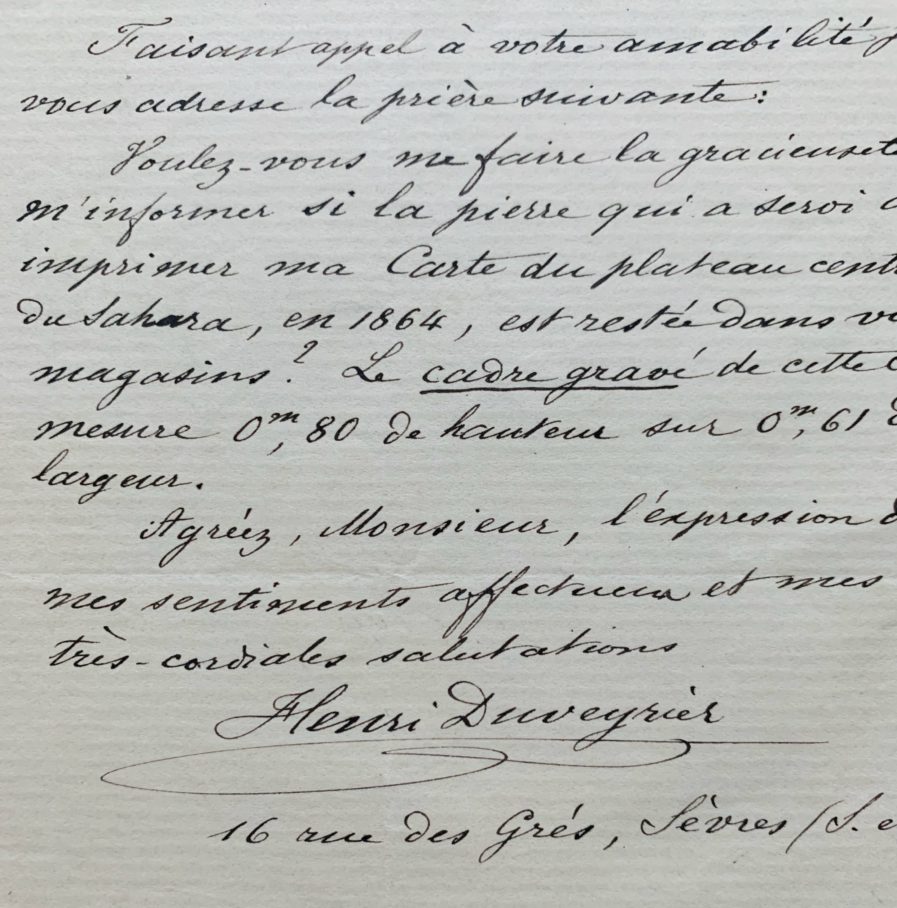 Faisant appel à votre amabilité j
vous adresse la prière suivante:
Voulez-vous me faire la gracieuset
m'informer si la pierre qui a servi
imprimer ma Carte du plateau cent
du Sahara, en 1864, est restée dans v
magasins? Le cadre gravé de cette
mesure 0m,80 de hauteur sur 0m,61
largeur.
Agréez, Monsieur, l'expression d
mes sentiments affectueux et mes
très-cordiales salutations
Henri Duveyrier
16 rue des Grés, Sèvres (S. e